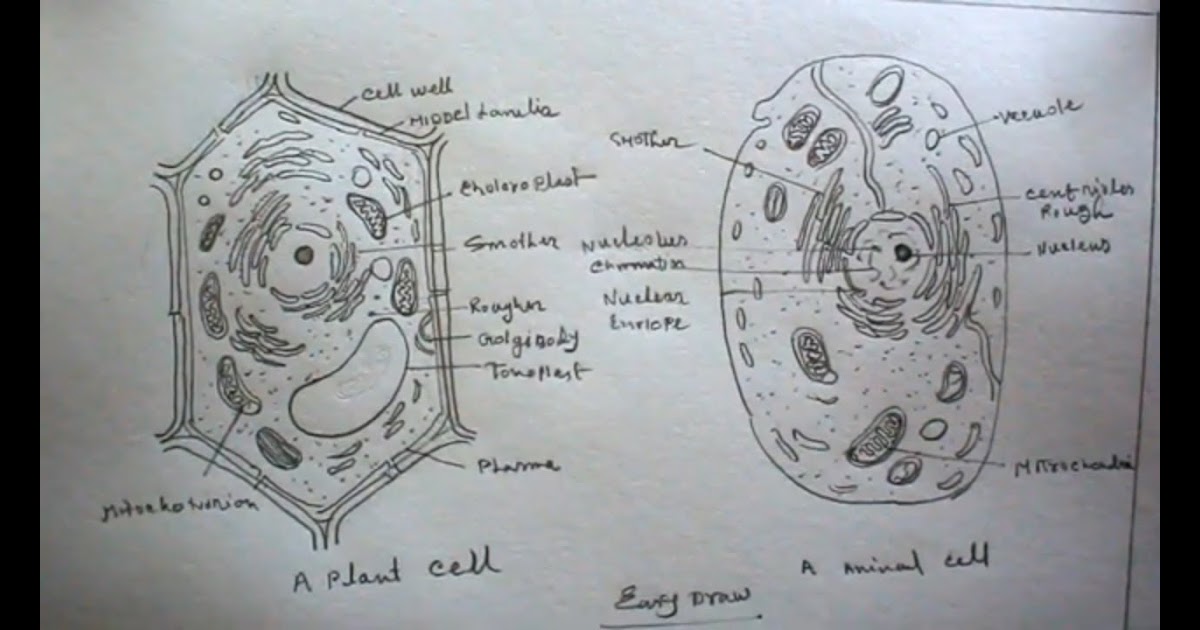 Cell well
MIDDEL Lamelia
Choloroplast
Smother
Rougher
Golgi Body
Tonoplast
Plasma
Mitochondrion
A Plant cell
Smother
Nucleolues
Chromatin
Nuclear
Envlope
Vecuole
Centrioles
Rough
Nucleus
Mitrochondria
A Animal cell
Easy Draw